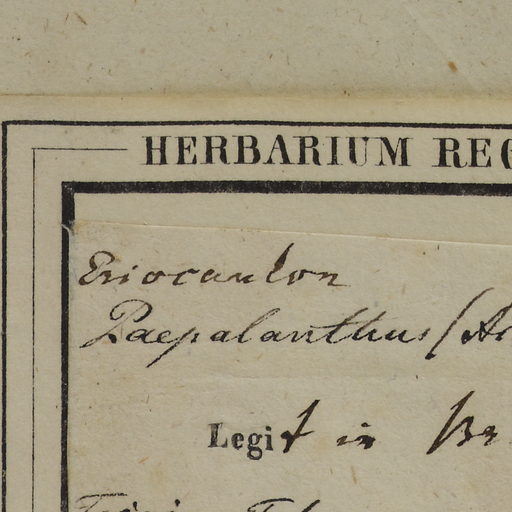 HERBARIUM REG
Eriocaulon
Paepalanthus (Ar
Legit in Br